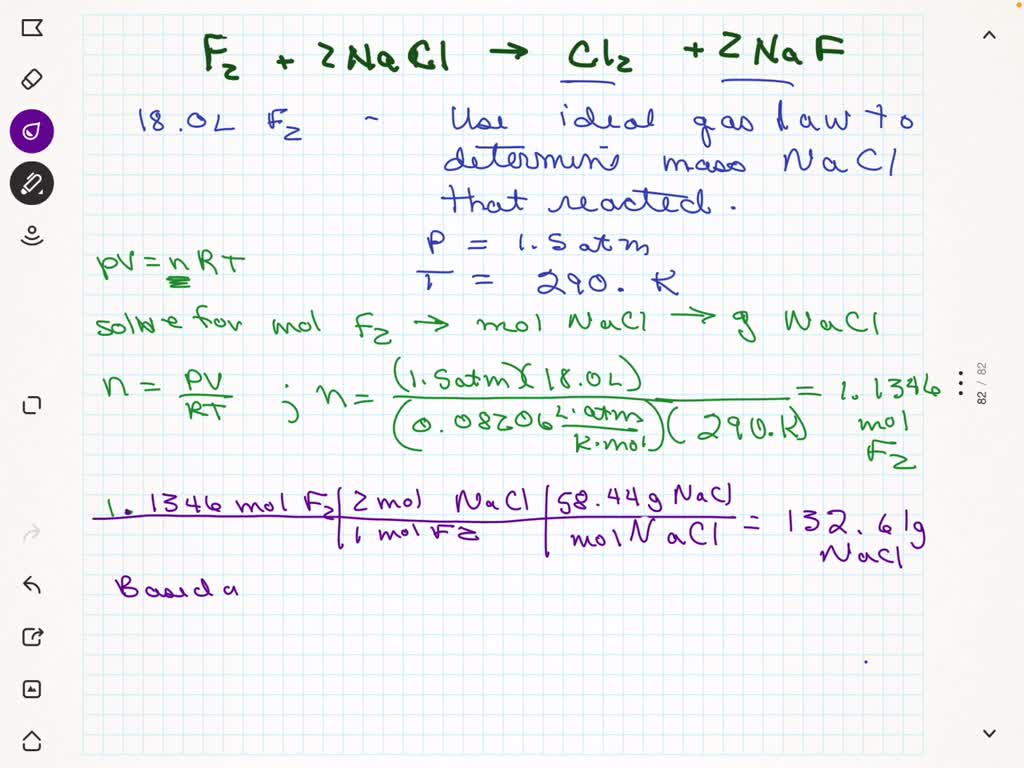 F₂ + 2NaCl → Cl₂ + 2NaF
18.0L F₂ - Use ideal gas law to
determine mass NaCl
that reacted.
P = 1.5 atm
T = 290. K
pV = nRT
solve for mol F₂ → mol NaCl → g NaCl
n = PV/RT ; n = (1.5atm)(18.0L)/(0.08206 L·atm/K·mol)(290.K) = 1.1346 mol F₂
1.1346 mol F₂ | 2 mol NaCl / 1 mol F₂ | 58.44g NaCl / mol NaCl = 132.61g NaCl
Based
82 / 82